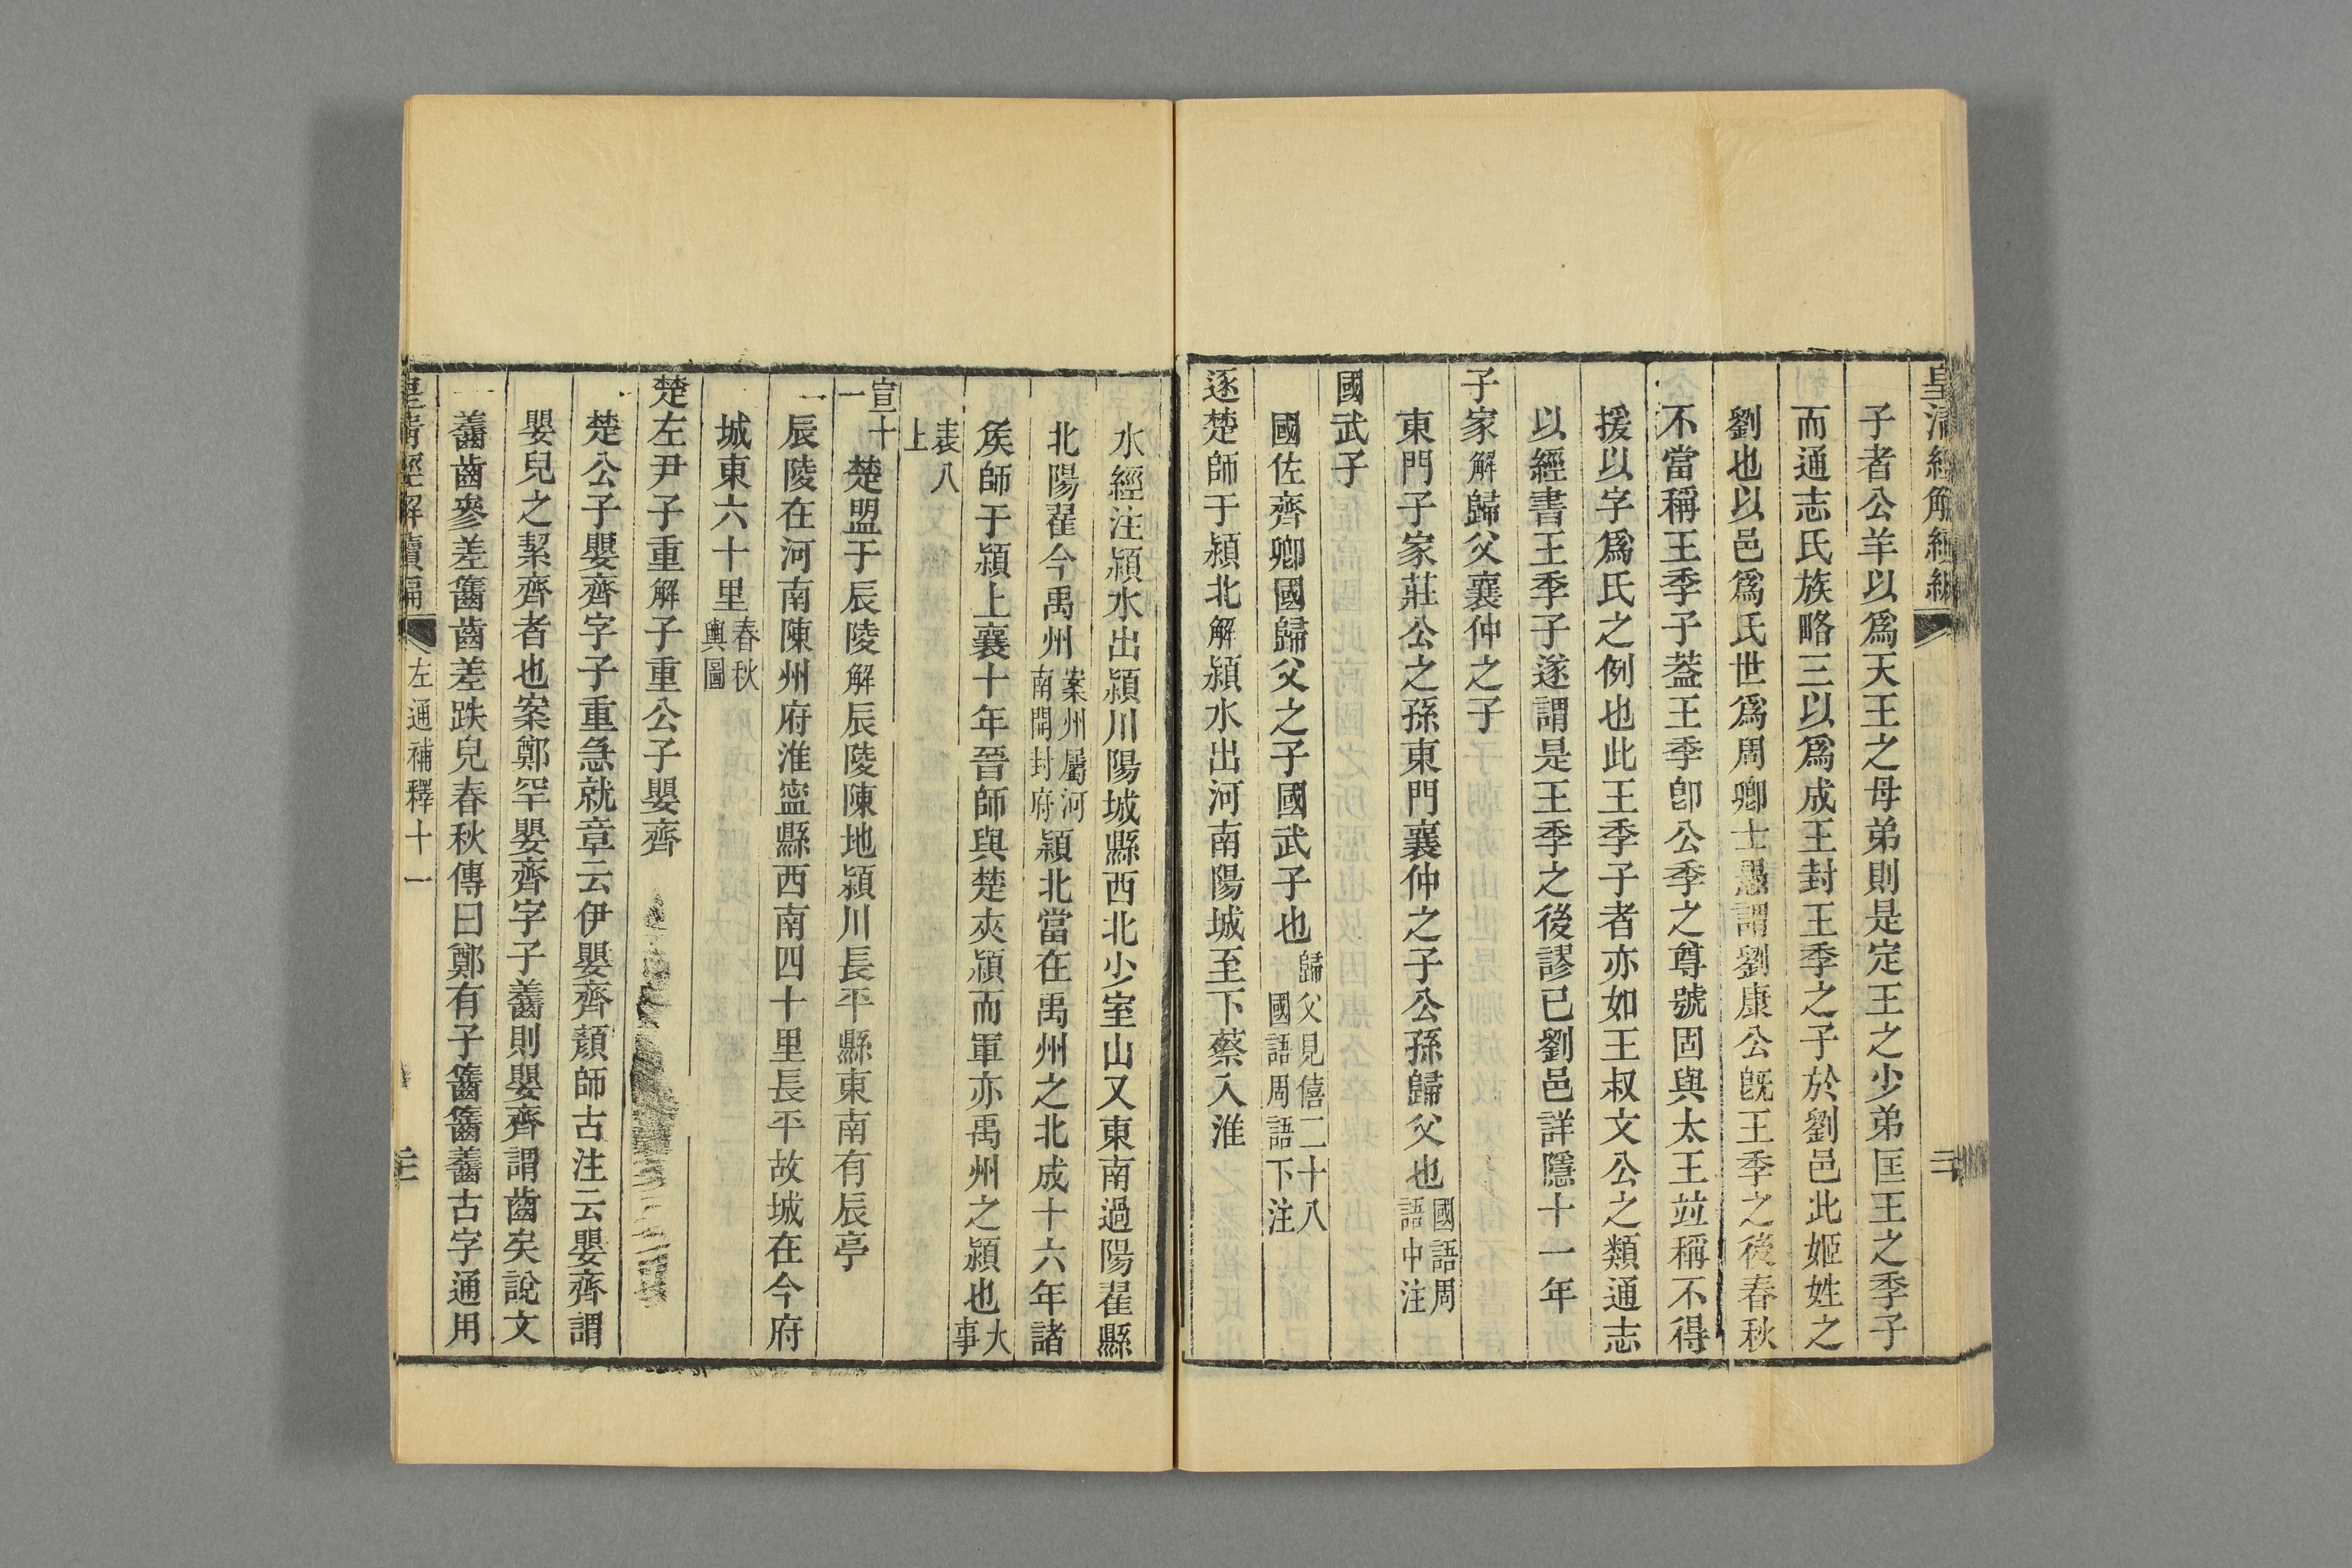 皇清經解續編 二
子者公羊以爲天王之母弟則是定王之少弟匡王之季子
而通志氏族略三以爲成王封王季之子於劉邑此姬姓之
劉也以邑爲氏世爲周卿士愚謂劉康公旣王季之後春秋
不當稱王季子葢王季卽公季之尊號固與太王竝稱不得
援以字爲氏之例也此王季子者亦如王叔文公之類通志
以經書王季子遂謂是王季之後謬已劉邑詳隱十一年
子家解歸父襄仲之子
東門子家莊公之孫東門襄仲之子公孫歸父也國語周語中注
國武子
國佐齊卿國歸父之子國武子也歸父見僖二十八國語周語下注
逐楚師于潁北解潁水出河南陽城至下蔡入淮
水經注潁水出潁川陽城縣西北少室山又東南過陽翟縣
北陽翟今禹州案州屬河南開封府潁北當在禹州之北成十六年諸
矦師于潁上襄十年晉師與楚夾潁而軍亦禹州之潁也大事
表八上
宣十一楚盟于辰陵解辰陵陳地潁川長平縣東南有辰亭
辰陵在河南陳州府淮寍縣西南四十里長平故城在今府
城東六十里春秋輿圖
楚左尹子重解子重公子嬰齊
楚公子嬰齊字子重急就章云伊嬰齊顏師古注云嬰齊謂
嬰兒之絜齊者也案鄭罕嬰齊字子齹則嬰齊謂齒矣說文
齹齒參差䶥齒差跌皃春秋傳曰鄭有子䶥䶥齹古字通用
皇清經解續編 左通補釋十一 三